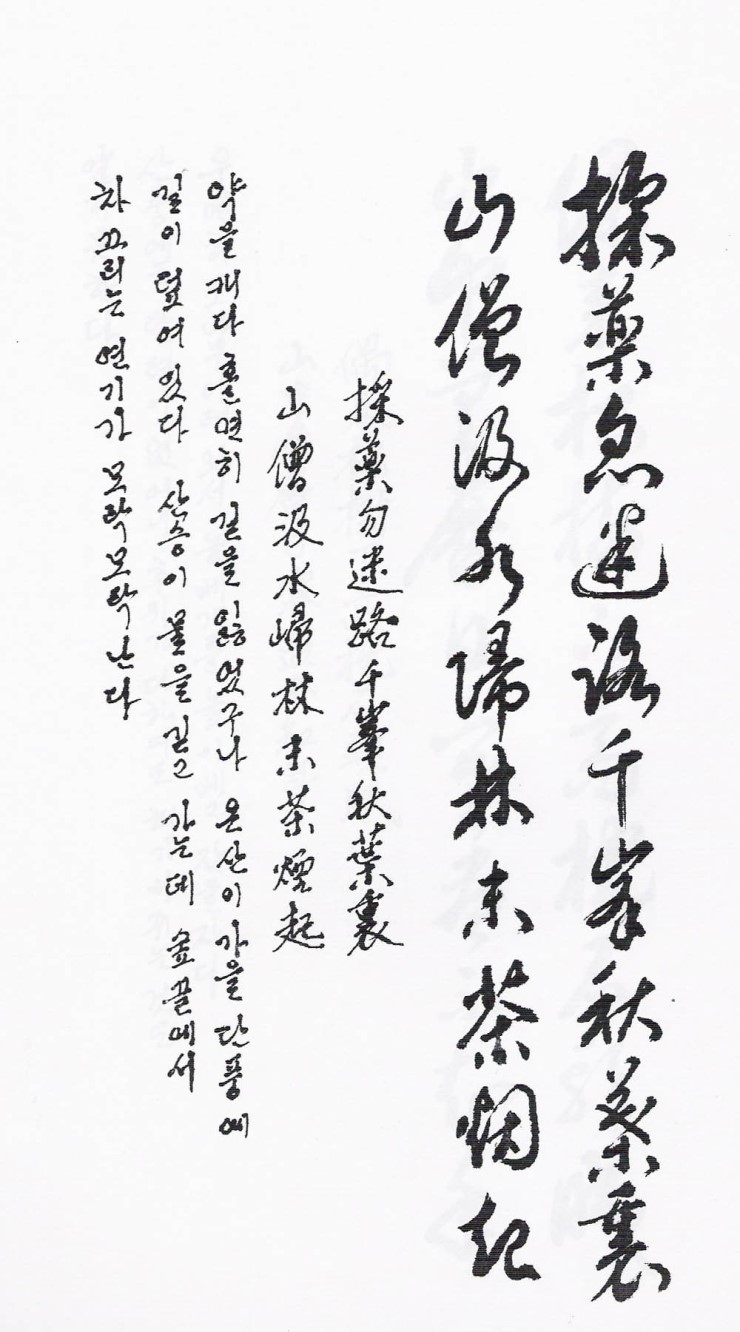 採藥忽迷路千峯秋葉裏
山僧汲水歸林末茶烟起
採藥勿迷路千峯秋葉裏
山僧汲水歸林末茶煙起
약을 캐다 홀연히 길을 잃었구나 온산이 가을 단풍에
길이 덮여 있다 산승이 물을 길고 가는데 숲끝에서
차 끄리는 연기가 모락모락 난다